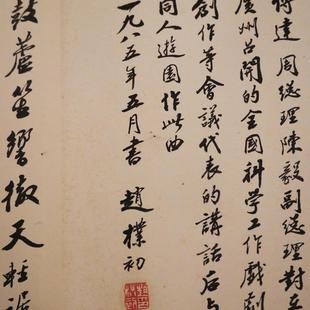 達周總理陳毅副總理對在
廣州召開的全國科學工作戲劇
創作等會議代表的講話后与
同人遊園作此曲
一九八五年五月書 趙樸初
鼓蘆笙響徹天輕